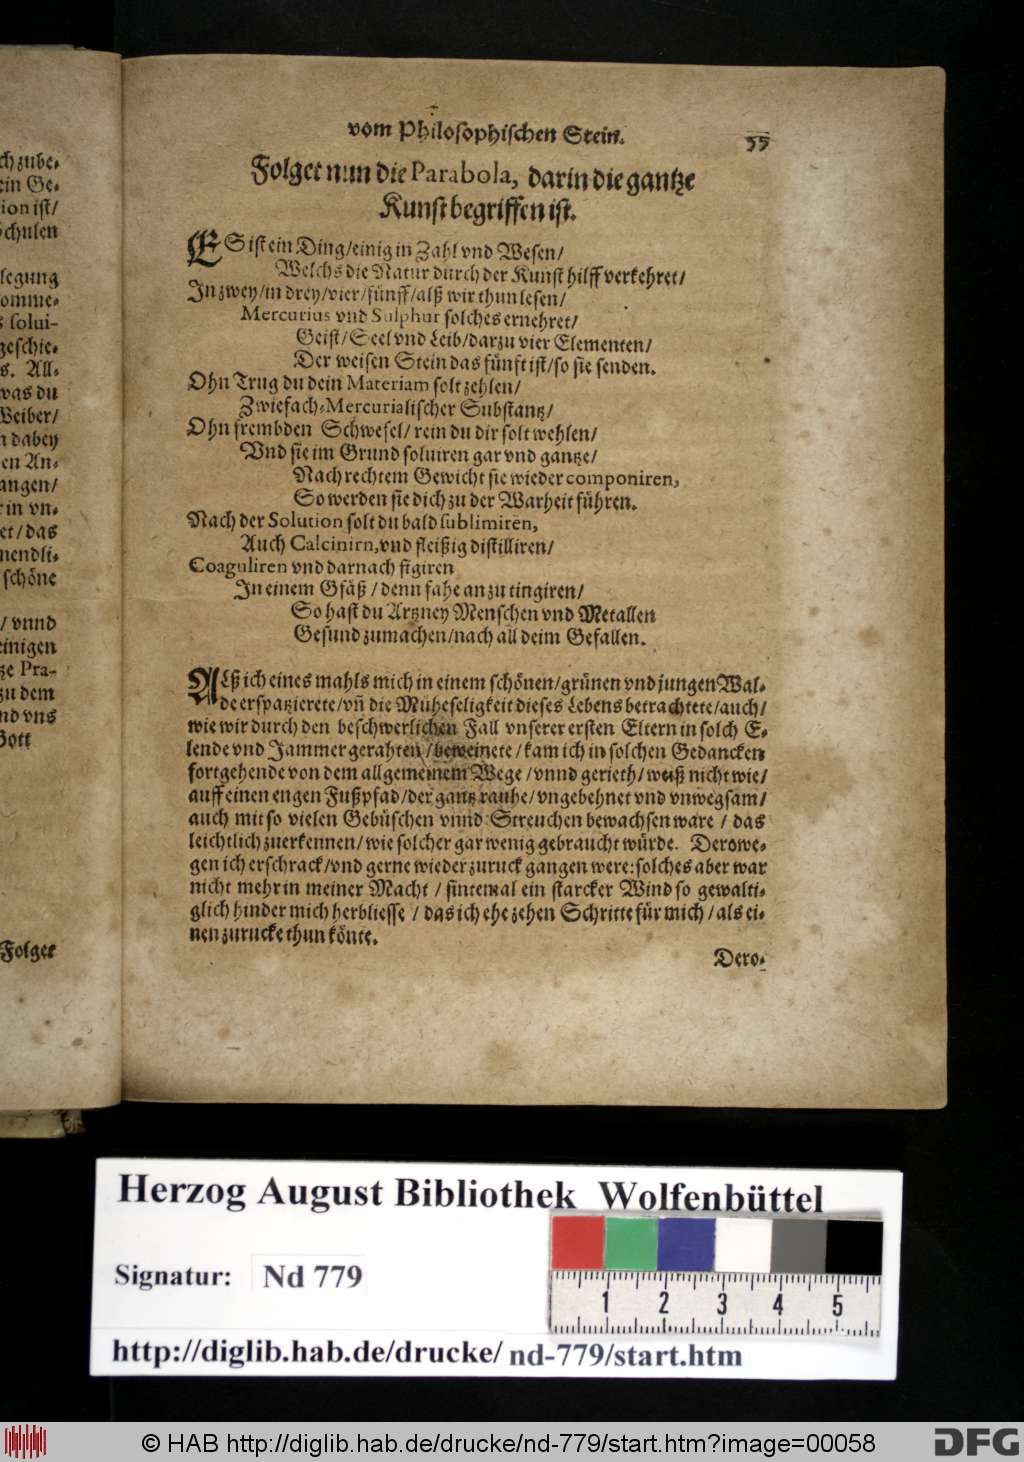 ch zube-
ein Ge-
ion ist/
Schulen
legung
omme-
s solui-
geschie-
s. All-
was du
Weiber/
n dabey
en An-
angen/
r in vn-
et/das
nendli-
schöne
/ vnnd
einigen
tze Pra-
zu dem
nd vns
Gott
Folget
vom Philosophischen Stein. 55
Folget nun die Parabola, darin die gantze
Kunst begriffen ist.
ES ist ein Ding/einig in Zahl vnd Wesen/
Welchs die Natur durch der Kunst hilff verkehret/
In zwey/in drey/vier/fünff/alß wir thun lesen/
Mercurius vnd Sulphur solches ernehret/
Geist/Seel vnd Leib/darzu vier Elementen/
Der weisen Stein das fünfft ist/so sie senden.
Ohn Trug du dein Materiam solt zehlen/
Zwiefach-Mercurialischer Substantz/
Ohn frembden Schwefel/rein du dir solt wehlen/
Vnd sie im Grund soluiren gar vnd gantze/
Nach rechtem Gewicht sie wieder componiren,
So werden sie dich zu der Warheit führen.
Nach der Solution solt du bald sublimiren,
Auch Calcinirn, vnd fleißig distilliren/
Coaguliren vnd darnach figiren
In einem Gfäß/denn fahe an zu tingiren/
So hast du Artzney Menschen vnd Metallen
Gesund zumachen/nach all deim Gefallen.
ALß ich eines mahls mich in einem schönen/grünen vnd jungen Wal-
de erspatzierete/vn̄ die Müheseligkeit dieses Lebens betrachtete/auch/
wie wir durch den beschwerlichen Fall vnserer ersten Eltern in solch E-
lende vnd Jammer gerahten/beweinete/kam ich in solchen Gedancken
fortgehende von dem allgemeinem Wege/vnnd gerieth/weiß nicht wie/
auff einen engen Fußpfad/der gantz rauhe/vngebehnet vnd vnwegsam/
auch mit so vielen Gebüschen vnnd Streuchen bewachsen ware/das
leichtlich zuerkennen/wie solcher gar wenig gebraucht würde. Derowe-
gen ich erschrack/vnd gerne wieder zuruck gangen were: solches aber war
nicht mehr in meiner Macht/sintemal ein starcker Wind so gewalti-
glich hinder mich herbliesse/das ich ehe zehen Schritte für mich/als ei-
nen zurucke thun könte.
Dero-
Herzog August Bibliothek Wolfenbüttel
Signatur: Nd 779
1 2 3 4 5
http://diglib.hab.de/drucke/ nd-779/start.htm
© HAB http://diglib.hab.de/drucke/nd-779/start.htm?image=00058
DFG